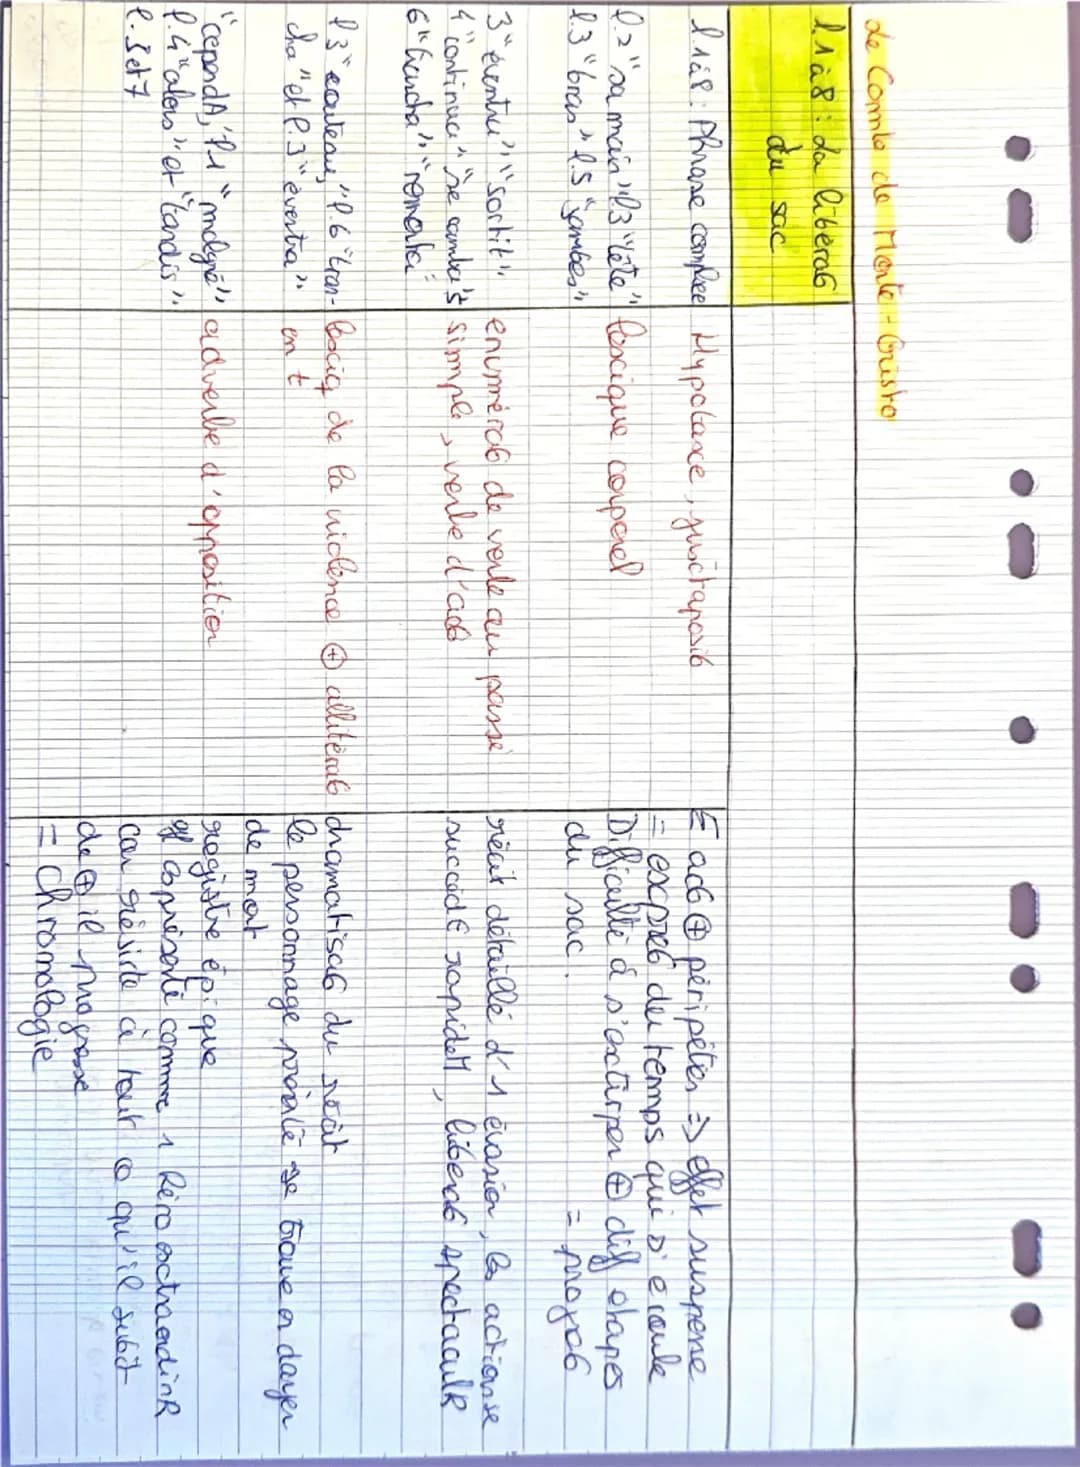 de Comte de Monte-Cristo
l.1à8 : La libérat°
du sac
l.1à8 : Phrase complexe
Hypotaxe, juxtaposit°
= act° ⊕ péripéties => effet suspense
= expres° du temps qui s'écoule
l.2 "sa main" l.3 "tête"
l.3 "bras" l.5 "jambes"
lexique corporel
Difficulté à s'extirper ⊕ diff étapes
du sac. = progres°
3 "éventra", "sortit",
4 "continua", "se cambra" 5
6 "trancha", "remonta"
énumérat° de verbe au passé
simple, verbe d'act°
récit détaillé d'1 évasion, les actions se
succèdE rapideM, libérat° spectaculR
l.3 "couteau," l.6 "tran-
cha" et l.3 "éventra".
lexiq de la violence ⊕ allitérat°
en t
dramatisat° du récit
le personnage principal se trouve en danger
de mort
"cependA," l.1 "malgré",
l.4 "alors", et "tandis".
l.5 et 7
adverbe d'opposition
registre épique
représenté comme 1 héro extraordinR
car résiste à tout ce qu'il subit
de ⊕ il progresse
= Chronologie